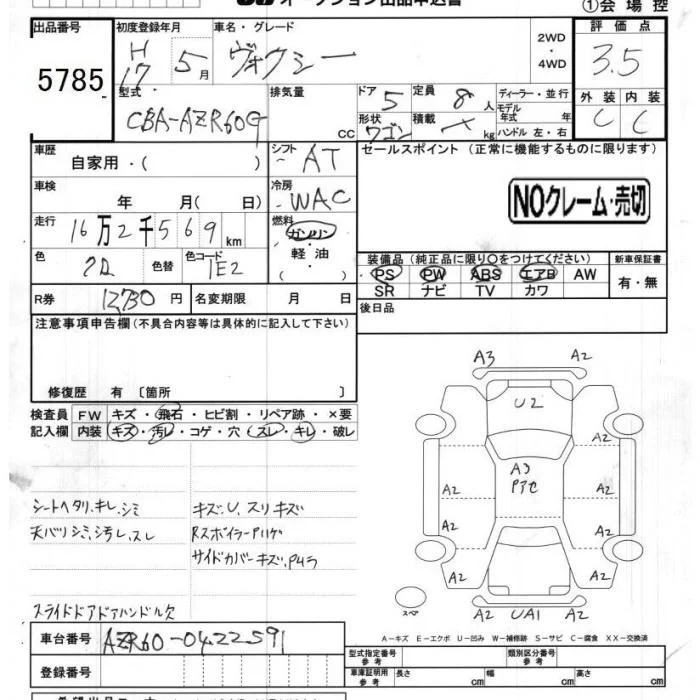 オークション出品申込書
①会場控
出品番号 5785
初度登録年月 H17 5月
車名・グレード ヴォクシー
2WD・4WD
評価点 3.5
型式 CBA-AZR60G
排気量 CC
ドア 5 定員 8人
形状 ワゴン 積載 kg
ディーラー・並行
モデル年式 年
ハンドル 左・右
外装 C 内装 C
車歴 自家用・( )
シフト AT
セールスポイント (正常に機能するものに限ります)
車検 年 月( 日)
冷房 WAC
NOクレーム・売切
走行 16万2千569km
燃料 ガソリン・軽油・( )
色 色替 色コード 1E2
装備品(純正品に限り○をつけてください)
PS PW ABS エアB AW
SR ナビ TV カワ
新車保証書 有・無
R券 12730円
名変期限 月 日
後日品
注意事項申告欄(不具合内容等は具体的に記入して下さい)
修復歴 有〔箇所 〕
検査員記入欄
FW キズ・飛石・ヒビ割・リペア跡・×要
内装 キズ・汚レ・コゲ・穴・スレ・キレ・破レ
シートヘタリ、キレ、シミ
キズ、U、スリキズ
天バリシミ、汚レ、スレ
RスボイラーPハゲ
サイドカバーキズ、Pムラ
スライドドアドアハンドル欠
A3 A2
U2
A2
A3
Pアセ
A2 A2
A2 A2
A2 A2
スペ
A2 UA1 A2
A-キズ E-エクボ U-凹み W-補修跡 S-サビ C-腐食 XX-交換済
車台番号 AZR60-0422591
登録番号
型式指定番号 参考
類別区分番号 参考
車庫証明用 参考 長さ cm 幅 cm 高さ cm